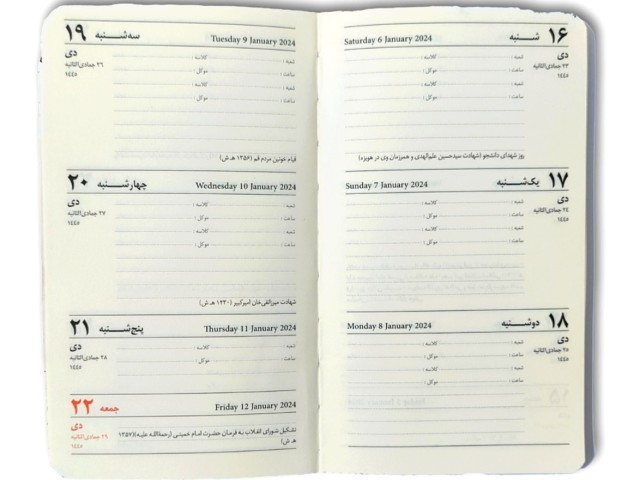 ۱۶ شنبه Saturday 6 January 2024
دی
۲۳ جمادی‌الثانیه
۱۴۴۵
شعبه : کلاسه :
ساعت : موکل :
شعبه : کلاسه :
ساعت : موکل :
روز شهدای دانشجو (شهادت سیدحسین علم‌الهدی و همرزمان وی در هویزه)
۱۷ یک‌شنبه Sunday 7 January 2024
دی
۲۴ جمادی‌الثانیه
۱۴۴۵
شعبه : کلاسه :
ساعت : موکل :
شعبه : کلاسه :
ساعت : موکل :
۱۸ دوشنبه Monday 8 January 2024
دی
۲۵ جمادی‌الثانیه
۱۴۴۵
شعبه : کلاسه :
ساعت : موکل :
شعبه : کلاسه :
ساعت : موکل :
۱۹ سه‌شنبه Tuesday 9 January 2024
دی
۲۶ جمادی‌الثانیه
۱۴۴۵
شعبه : کلاسه :
ساعت : موکل :
شعبه : کلاسه :
ساعت : موکل :
قیام خونین مردم قم (۱۳۵۶ ه‍.ش)
۲۰ چهارشنبه Wednesday 10 January 2024
دی
۲۷ جمادی‌الثانیه
۱۴۴۵
شعبه : کلاسه :
ساعت : موکل :
شعبه : کلاسه :
ساعت : موکل :
شهادت میرزاتقی‌خان امیرکبیر (۱۲۳۰ ه‍.ش)
۲۱ پنج‌شنبه Thursday 11 January 2024
دی
۲۸ جمادی‌الثانیه
۱۴۴۵
شعبه : کلاسه :
ساعت : موکل :
۲۲ جمعه Friday 12 January 2024
دی
۲۹ جمادی‌الثانیه
۱۴۴۵
تشکیل شورای انقلاب به فرمان حضرت امام خمینی (رحمةالله علیه)(۱۳۵۷
ه‍.ش)